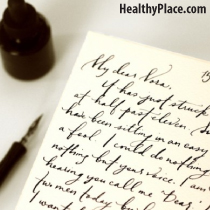 HealthyPlace.com
My dear Nora.
It has just struck
at half past eleven
have been sitting in an easy
a fool. I could do nothing
nothing but your voice. I am
hearing you call me Dear
two men today
I want